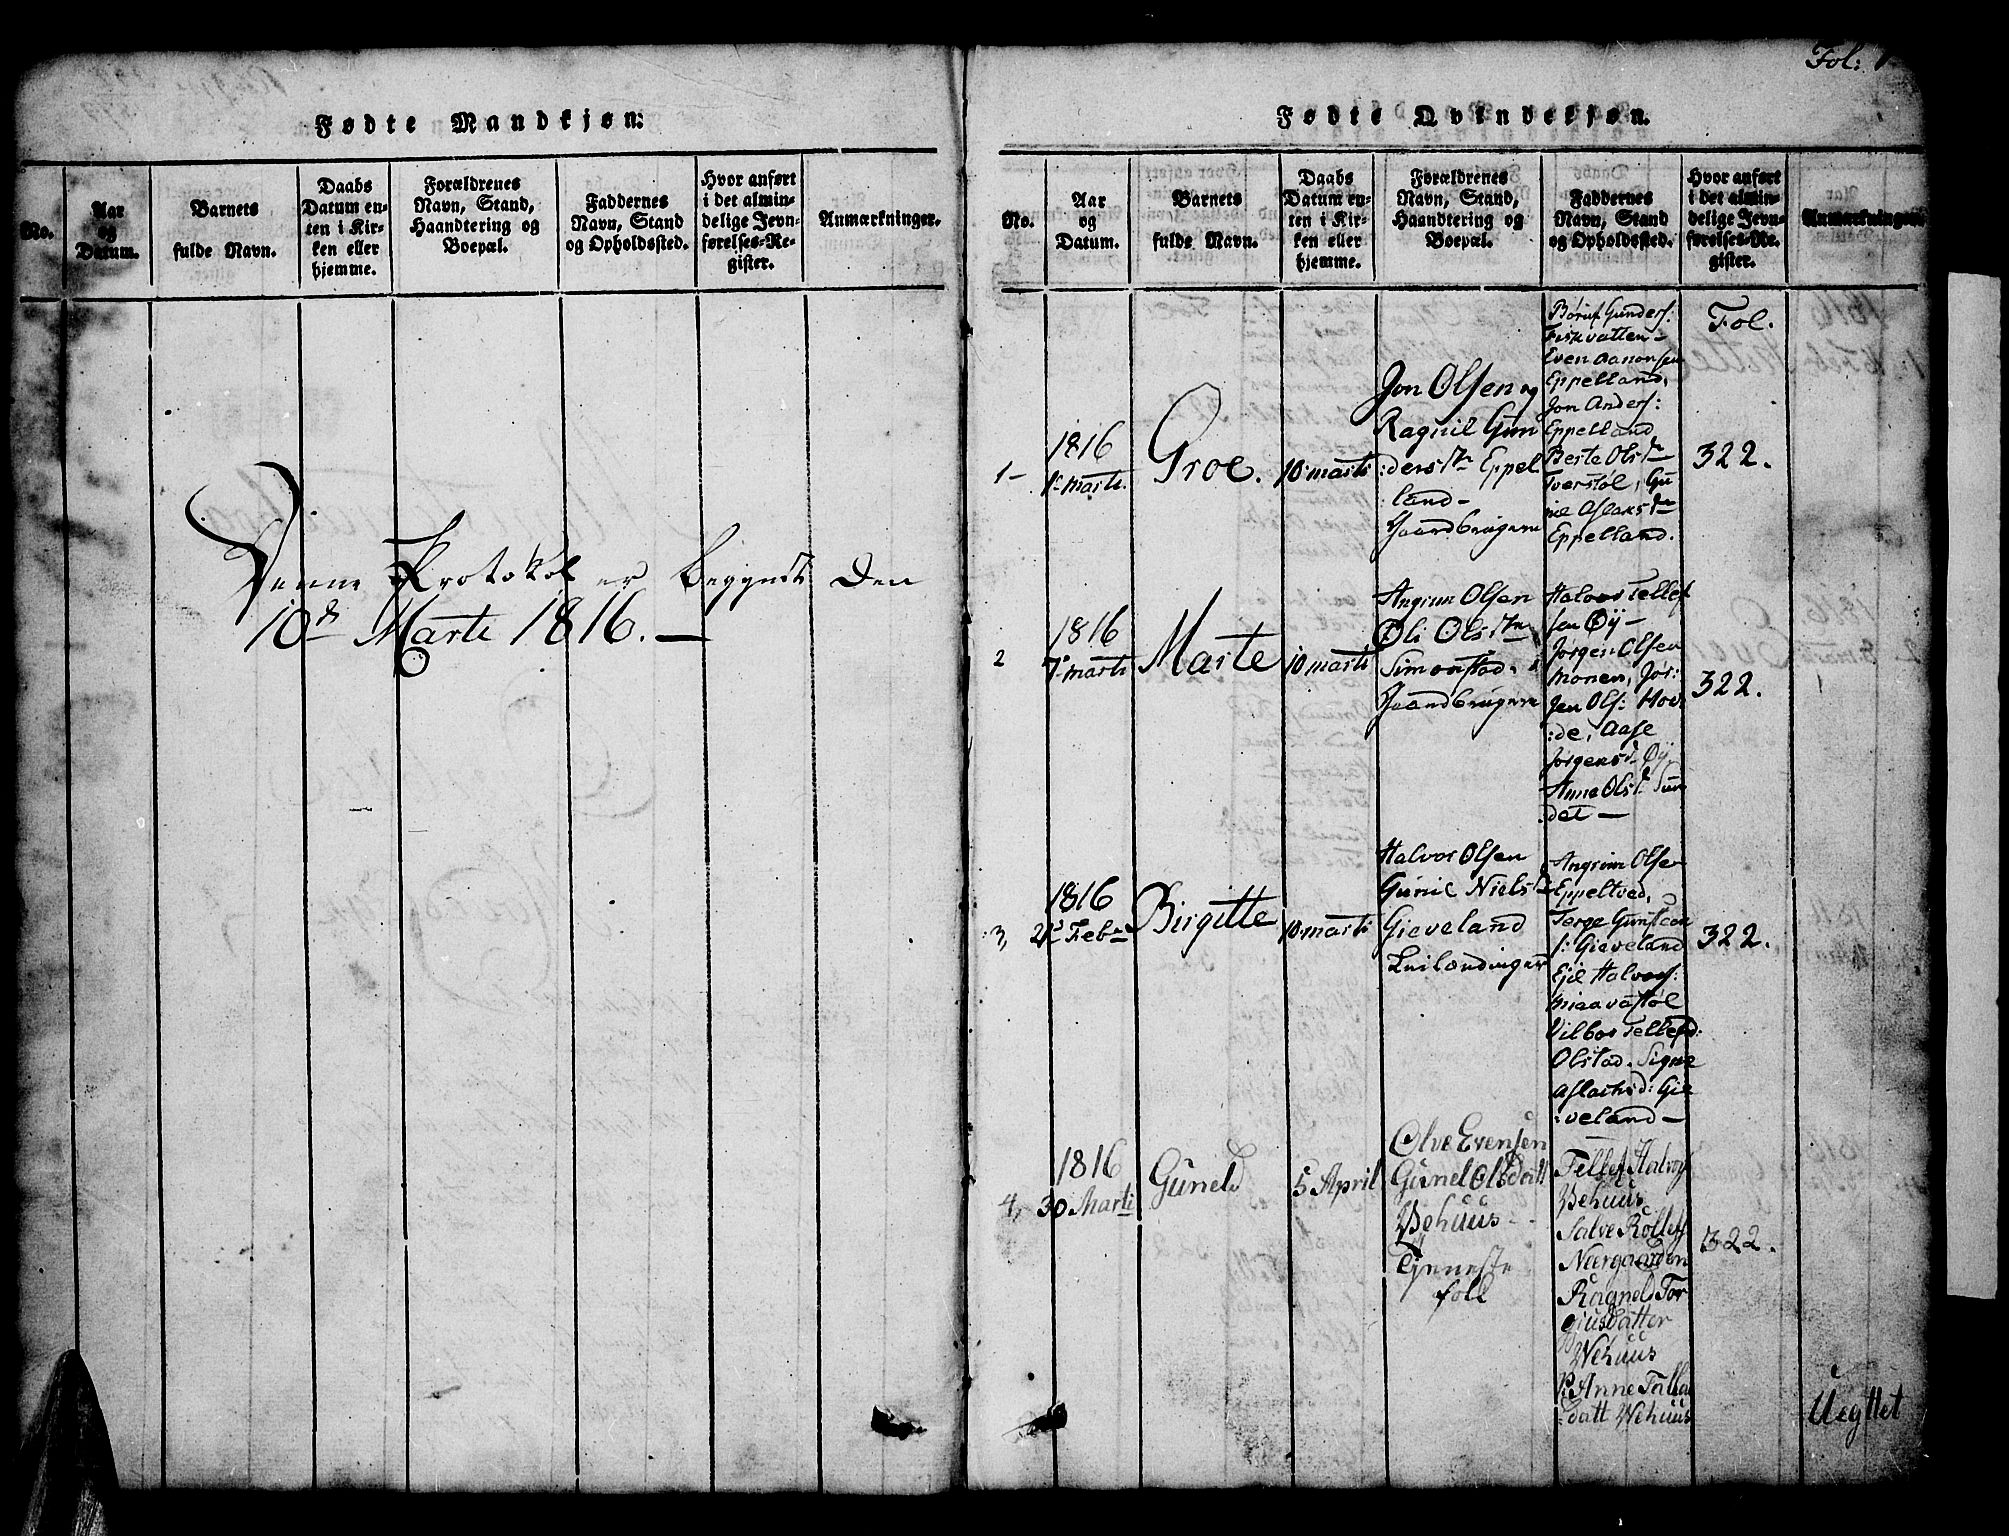 Fol: 1
Fødte Mandkjøn:
No.
Aar
og
Datum.
Barnets
fulde Navn.
Daabs
Datum en-
ten i Kir-
ken eller
hjemme.
Forældrenes
Navn, Stand,
Haandtering og
Boepæl.
Faddernes
Navn, Stand
og Opholdssted.
Hvor anført
i det almin-
delige Jevn-
førelses-Re-
gister.
Anmærkninger.
Denne Protokol er begyndt den
10de Marti 1816. —
Fødte Qvindekjøn.
No.
Aar
og
Datum.
Barnets
fulde Navn.
Daabs
Datum en-
ten i Kir-
ken eller
hjemme.
Forældrenes
Navn, Stand,
Haandtering og
Boepæl.
Faddernes
Navn, Stand
og Opholdssted.
Hvor anført
i det almin-
delige Jevn-
førelses-Re-
gister.
Anmærkninger.
1 -
1816
1e Marti.
Groe.
10 marti
Jon Olsen og
Ragnil Gun
:ders Dtr Eppel
land -
Gaardbrugere
Gunders:
Fiskvatten -
Even Aanonsen
Eppelland,
Jon Anders:
Eppelland
Berte Ols Dtr
Tverstøl, Gu
nil Aslaks Dtr
Eppelland.
Fol.
322.
2
1816
7e marti
Marte
10 marti
Angrim Olsen
Oli Ols Dtr
Simonstad.
Gaardbrugere
Halvor Tellef
sen Øÿ -
Jørgen Olsen
Monen, Jør:
gen Ols: Hov
:de, Aase
Jørgensd Øÿ,
Anne Olsd: Sun
det —
322.
:3,
1816
21d Febr
Birgitte
10 marti
Halvor Olsen
Gunil Nielsd
Gieveland
Leilændinger
Angrim Olsen
Eppeltved,
Terge Gunsteen
s: Gieveland
Ejel Halvors:
Miaavastøl
Vilbor Tellefd:
Olstad. Signe
Aslachsd: Gie
:veland —
322.
4,
1816
30 Marti
Guneld
5 April
Olve Evensen
Gunel Olsdatt
Vehuus -
Tjeneste
folk
Tellef Halvors
Vehuus
Salve Rollefs
Nærgaarden
Ragneld Tor
giusdatter
Wehuus
Anne
:datt Wehuus
322.
Uegttet